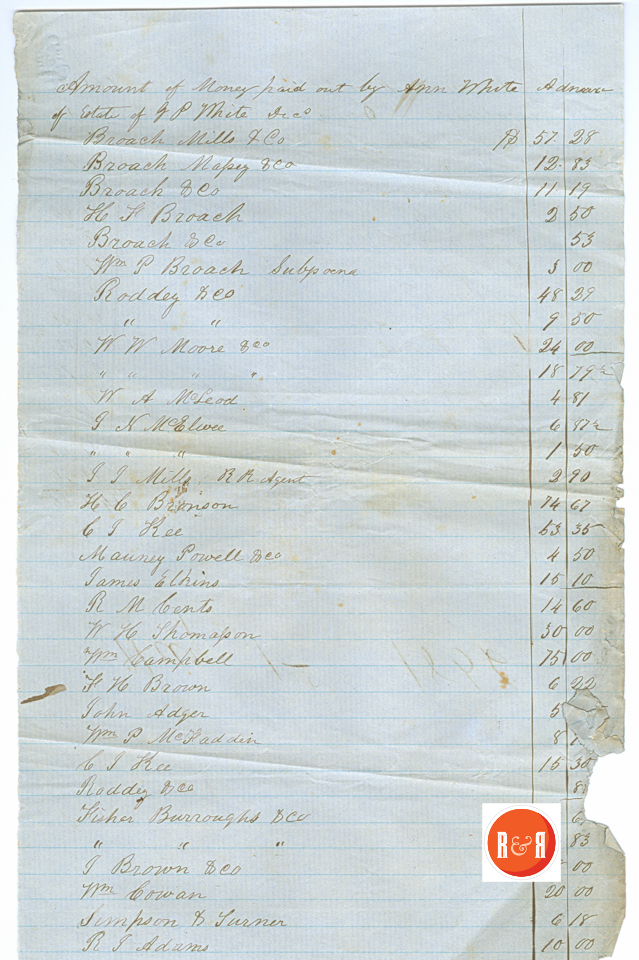 Amount of Money paid out by Ann White Admrx
of Estate of G P White Decd
Broach Mills & Co $ 57. 28
Broach Massey & Co 12. 83
Broach & Co 11 19
H F Broach 2 50
Broach & Co 53
Wm P Broach Subpoena 3 00
Roddey & Co 48 29
" " 9 50
W W Moore & Co 24 00
" " " " 18 79½
W A McLeod 4 81
J N McElwee 6 87½
" " " 1 50
J J Mills R R Agent 2 90
H C Bronson 74 67
C J Kee 53 35
Mauney Powell & Co 4 50
James Elkins 15 10
R M Cents 14 60
W H Thomasson 30 00
Wm Campbell 75 00
F H Brown 6 22
John Adger 5
Wm P McFadden 8
C J Kee 15 30
Roddey & Co 8
Fisher Burroughs & Co 6
" " " 83
J Brown & Co 00
Wm Cowan 20 00
Simpson & Turner 6 18
R J Adams 10 00
R&R